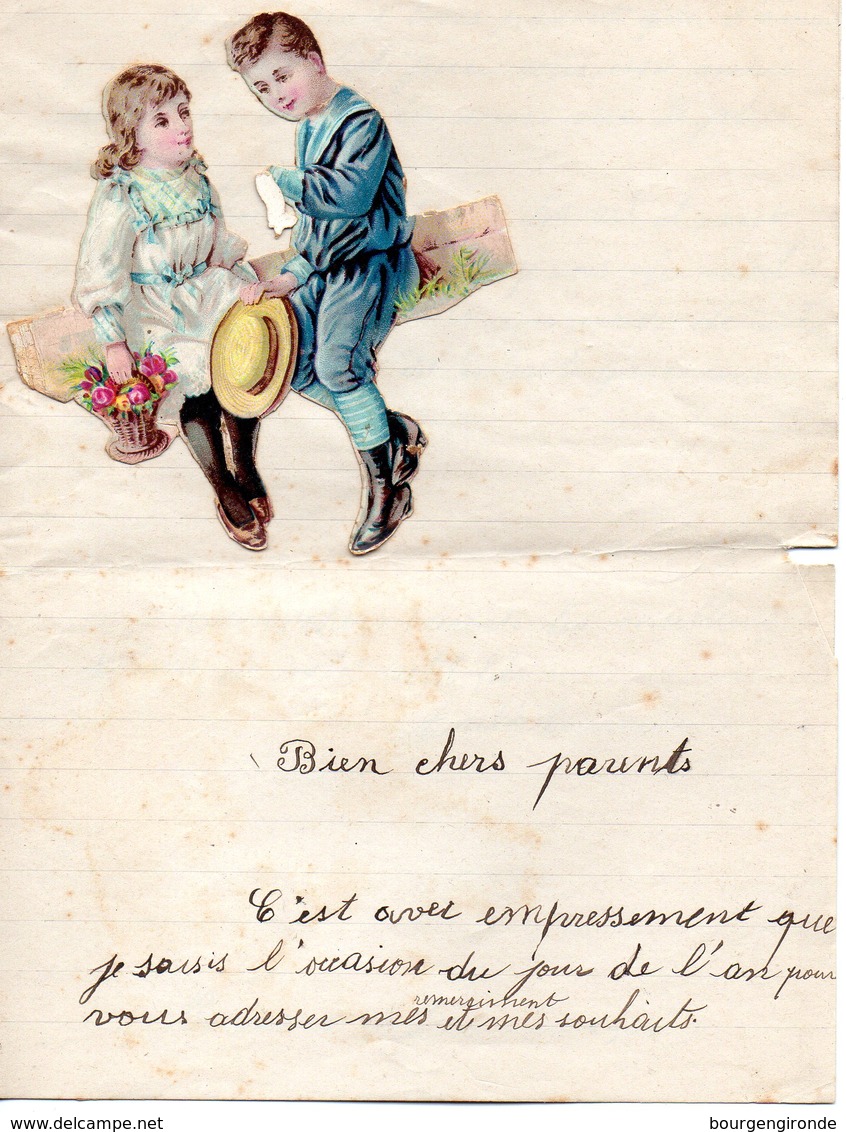 Bien chers parents
C'est avec empressement que
je saisis l'occasion du jour de l'an pour
remerciment
vous adresser mes et mes souhaits.
www.delcampe.net
bourgengironde